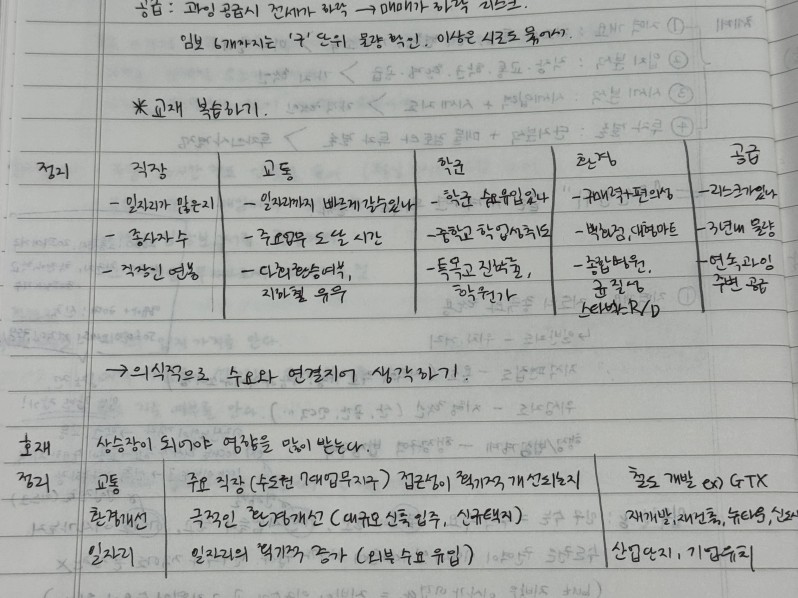 공급 : 과잉 공급시 전세가 하락 → 매매가 하락 리스크.
임보 6개까지는 '구' 단위 물량 확인. 이상은 시로도 묶어서.
* 교재 복습하기.
정리 직장 교통 학군 환경 공급
- 일자리가 많은지 - 일자리까지 빠르게 갈수있나 - 학군 수요유입있나 - 구매력+편의성 - 리스크가있나
- 종사자 수 - 주요업무 도달 시간 - 중학교 학업성취도 - 백화점, 대형마트 - 3년내 물량
- 직장인 연봉 - 다회환승여부, - 특목고 진학률, - 종합병원, - 연속과잉
지하철 유무 학원가 균질성 주변 공급
스타벅스R/D
→ 의식적으로 수요와 연결지어 생각하기.
호재 상승장이 되어야 영향을 많이 받는다.
정리 교통 주요 직장 (수도권 7대업무지구) 접근성이 획기적 개선되는지 철도 개발 ex) GTX
환경개선 극적인 환경개선 (대규모 신축 입주, 신규택지) 재개발, 재건축, 뉴타운,
일자리 일자리의 획기적 증가 (외부 수요 유입) 산업단지, 기업유치